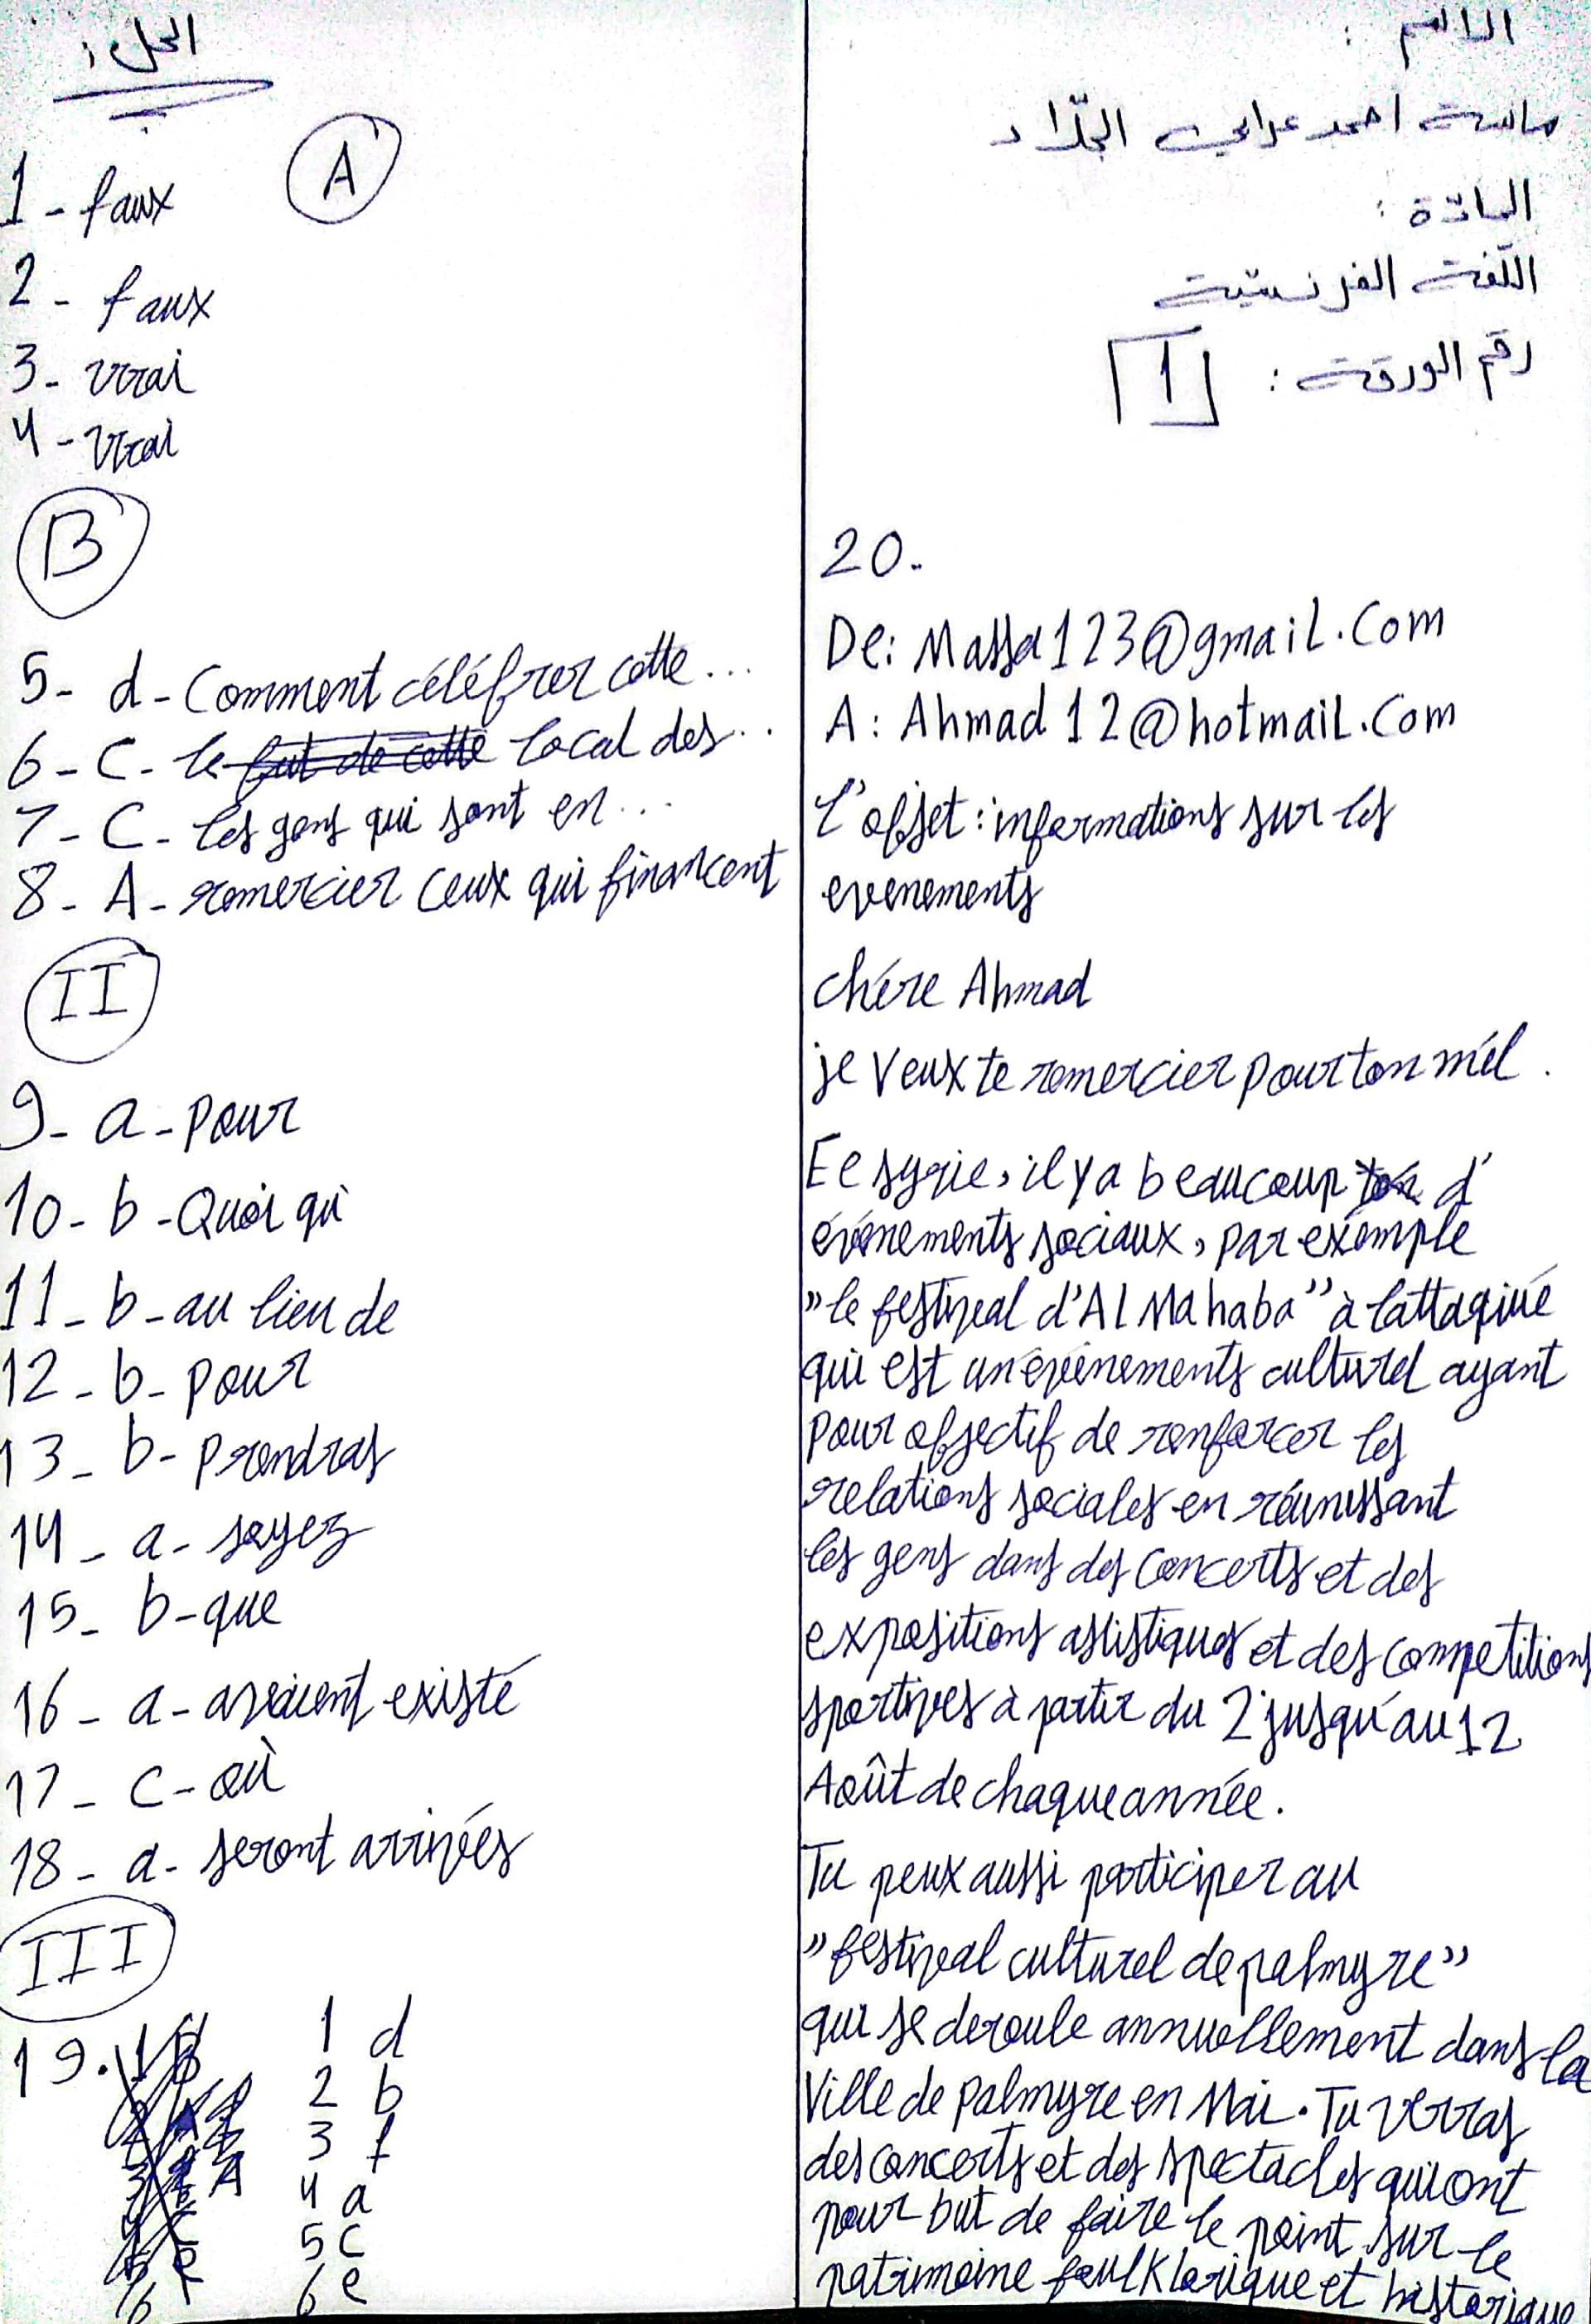 الاسم :
ماسة احمد عرابي الجلّاد
المادّة :
اللّغة الفرنسيّة
رقم الورقة : 1
الحل :
A
1 - faux
2 - faux
3 - vrai
4 - Vrai
B
5 - d - Comment céléfrer cette ...
6 - C - le local des ...
7 - C - les gens qui sont en ...
8 - A - remercier ceux qui financent
II
9 - a - pour
10 - b - Quoi qu
11 - b - au lieu de
12 - b - pour
13 - b - prendras
14 - a - soyez
15 - b - que
16 - a - avaient existé
17 - C - où
18 - a - seront arrivées
III
19.
1 d
2 b
3 f
4 a
5 C
6 e
20.
De: Massa123@gmail.Com
A : Ahmad12@hotmail.Com
L'objet : informations sur les
evenements
chére Ahmad
je veux te remercier pour ton mél .
Ee syrie, il y a beaucoup d'
événements sociaux, par exemple
"le festival d'Al Mahaba" à lattaquié
qui est un événements culturel ayant
pour objectif de renforcer les
relations sociales en réunissant
les gens dans des concerts et des
expositions astistiques et des competitions
sportives à partir du 2 jusqu'au 12
Août de chaque année.
Tu peux aussi participer au
"festival culturel de palmyre"
qui se deroule annuellement dans la
Ville de palmyre en Mai. Tu verras
des concerts et des spectacles qui ont
pour but de faire le point sur le
patrimoine foulklorique et historique